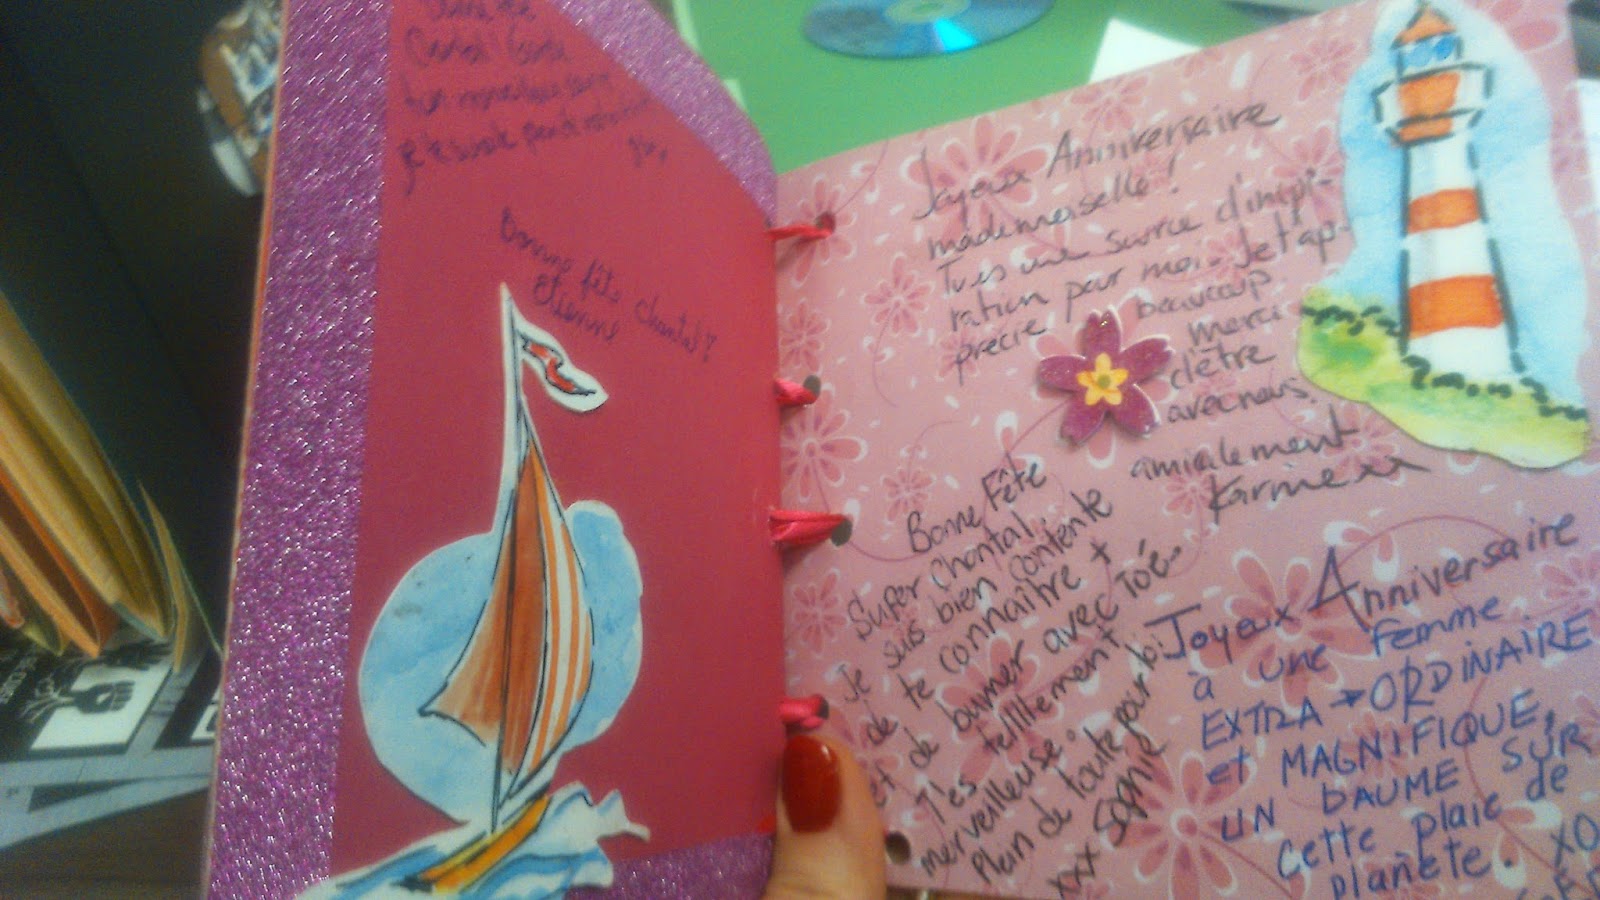 Bonne fête Chantal!
Etienne
Joyeux Anniversaire
mademoiselle!
Tu es une source d'inspi-
ration pour moi. Je t'ap-
précie beaucoup
merci
d'être
avec nous.
amicalement
Karine xx
Bonne Fête
Super Chantal,
Je suis bien contente
de te connaître +
et de bummer avec toé...
T'es tellllement
merveilleuse.
Plein de toute pour toi
xxx Sophie
Joyeux Anniversaire
à une femme
EXTRA→ORDINAIRE
et MAGNIFIQUE,
UN BAUME SUR
cette plaie de
planète.
XO